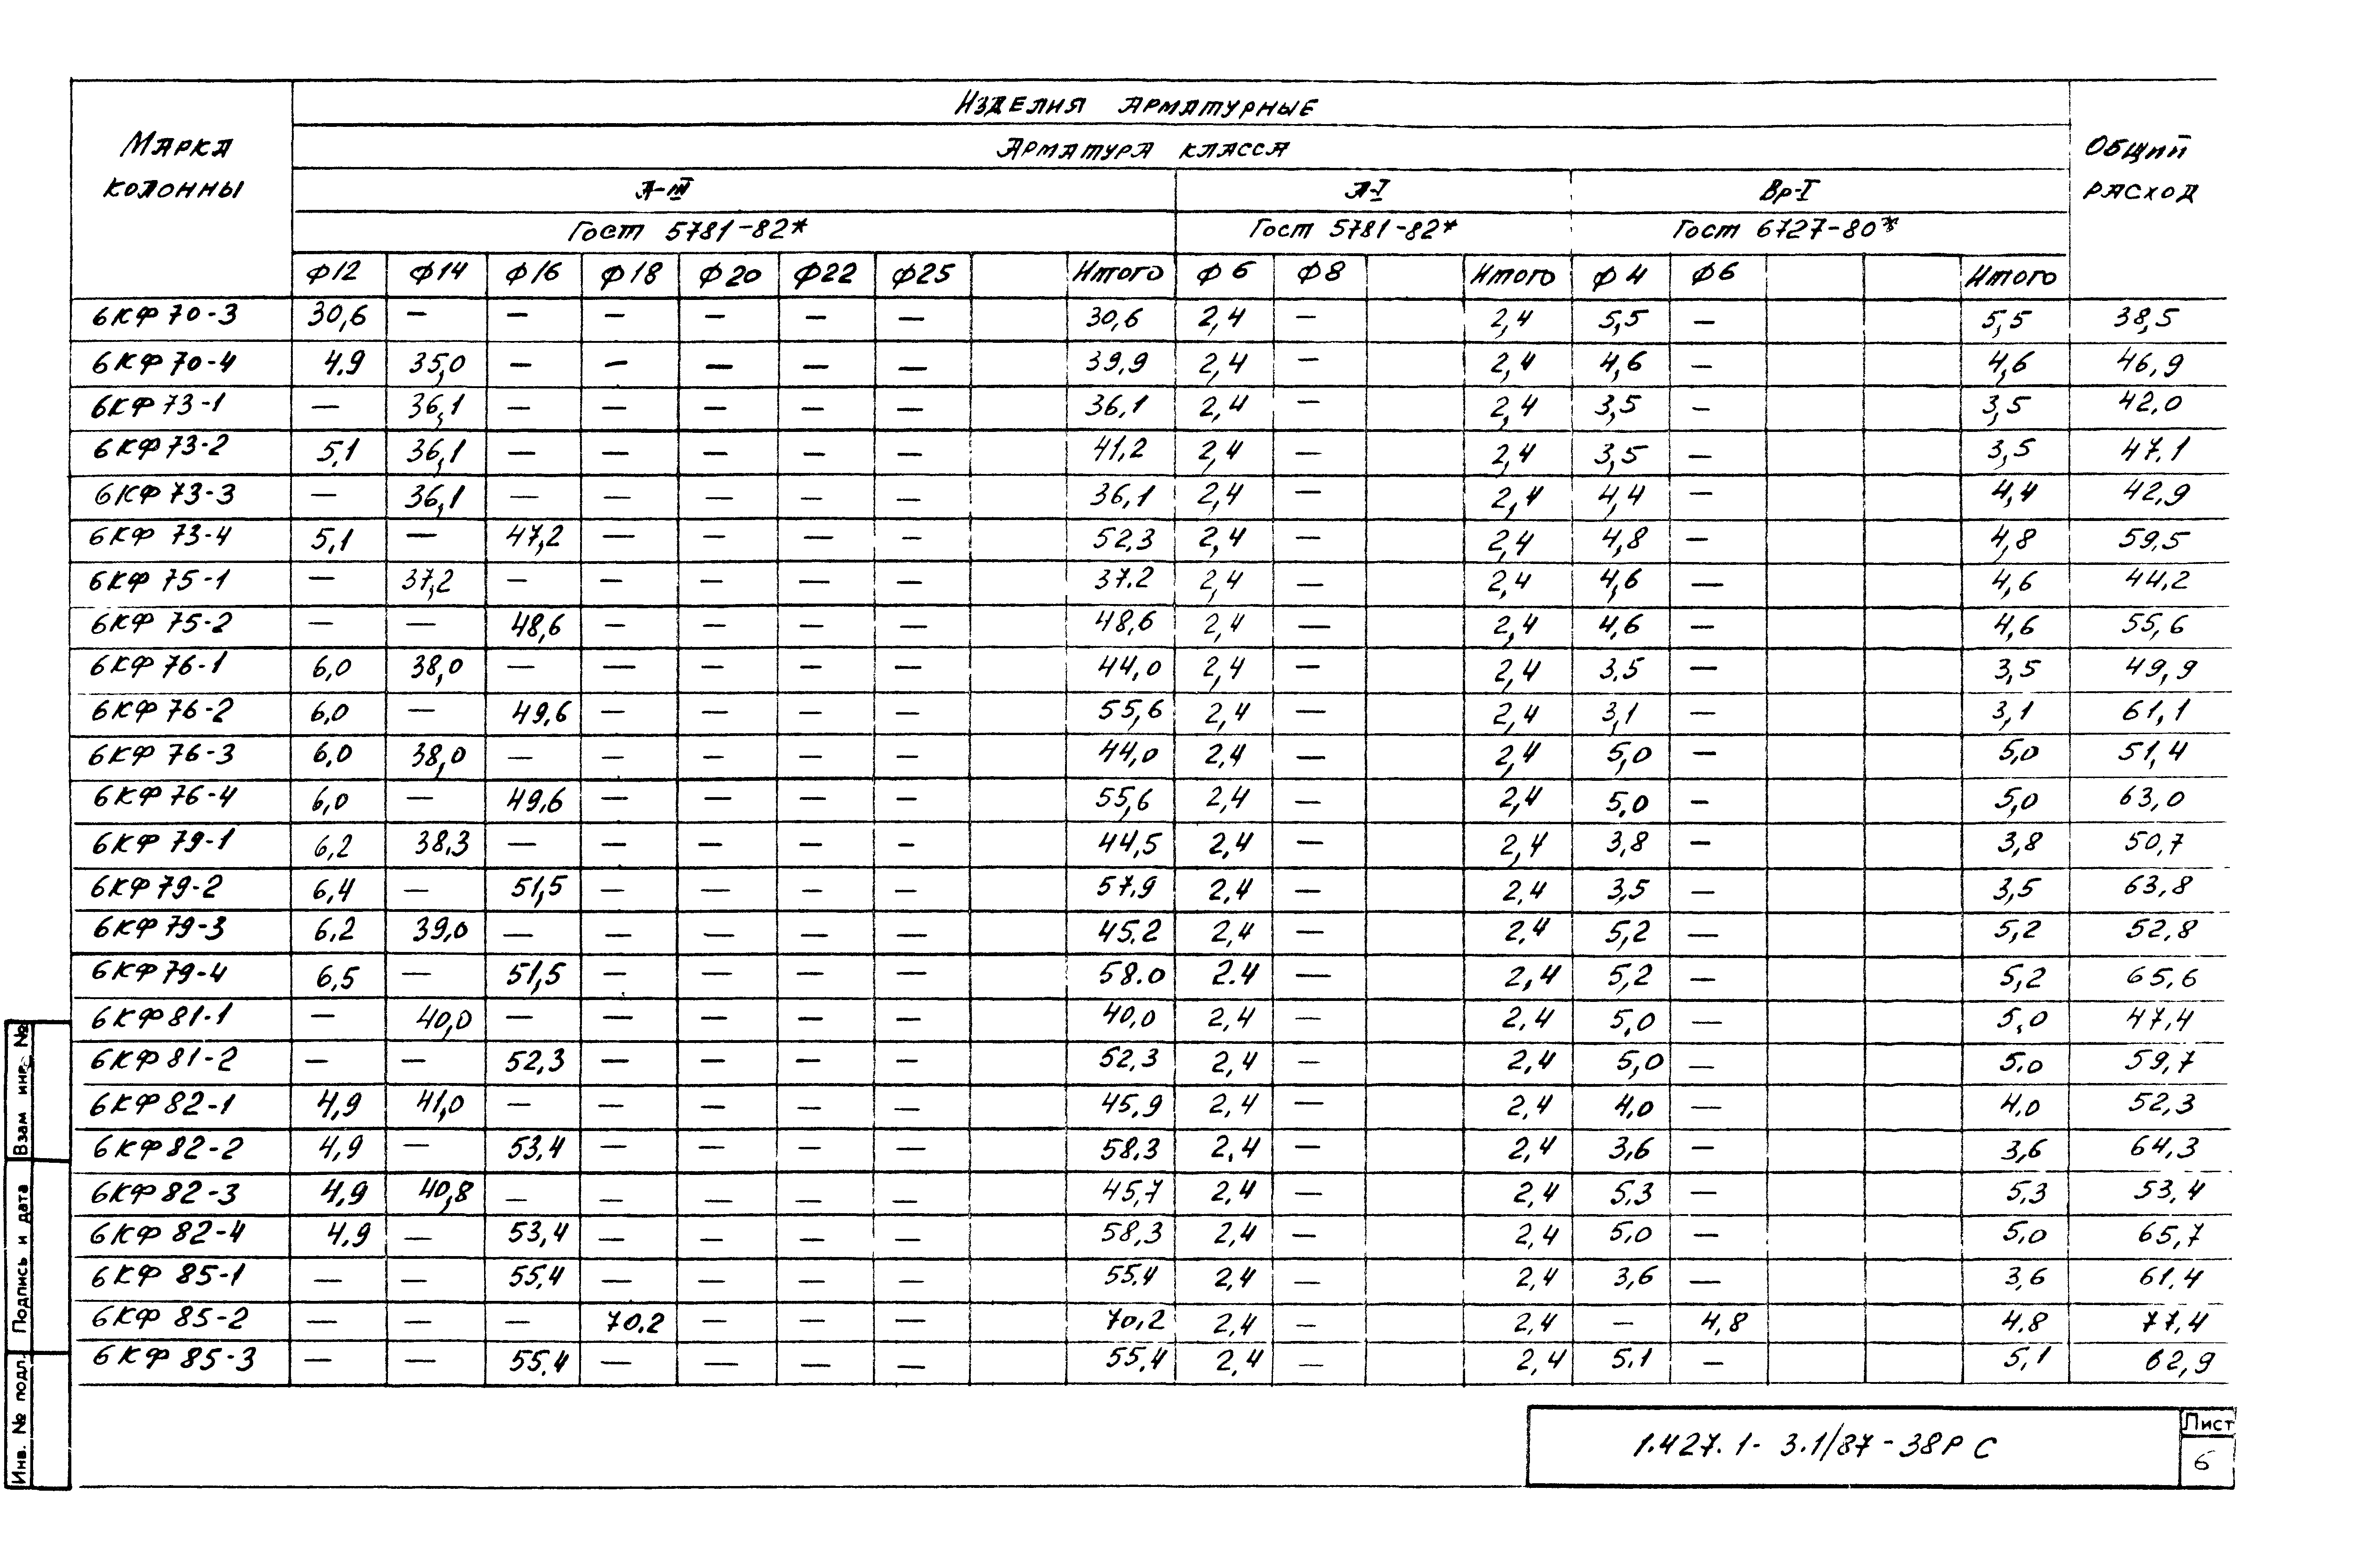 Изделия арматурные
Марка колонны
Арматура класса
Общий расход
А-III А-I Вр-I
Гост 5781-82* Гост 5781-82* Гост 6727-80*
Ф12 Ф14 Ф16 Ф18 Ф20 Ф22 Ф25 Итого Ф6 Ф8 Итого Ф4 Ф6 Итого
6КФ70-3 30,6 — — — — — — 30,6 2,4 — 2,4 5,5 — 5,5 38,5
6КФ70-4 4.9 35,0 — — — — — 39,9 2,4 — 2,4 4,6 — 4,6 46,9
6КФ73-1 — 36,1 — — — — — 36,1 2,4 — 2,4 3,5 — 3,5 42,0
6КФ73-2 5,1 36,1 — — — — — 41,2 2,4 — 2,4 3,5 — 3,5 47,1
6КФ73-3 — 36,1 — — — — — 36,1 2,4 — 2,4 4,4 — 4,4 42,9
6КФ 73-4 5,1 — 47,2 — — — — 52,3 2,4 — 2,4 4,8 — 4,8 59,5
6КФ 75-1 — 37,2 — — — — — 37.2 2,4 — 2,4 4,6 — 4,6 44,2
6КФ 75-2 — — 48,6 — — — — 48,6 2,4 — 2,4 4,6 — 4,6 55,6
6КФ 76-1 6,0 38,0 — — — — — 44,0 2,4 — 2,4 3,5 — 3,5 49,9
6КФ 76-2 6,0 — 49,6 — — — — 55,6 2,4 — 2,4 3,1 — 3,1 61,1
6КФ 76-3 6,0 38,0 — — — — — 44,0 2,4 — 2,4 5,0 — 5,0 51,4
6КФ 76-4 6,0 — 49,6 — — — — 55,6 2,4 — 2,4 5,0 — 5,0 63,0
6КФ 79-1 6,2 38,3 — — — — — 44,5 2,4 — 2,4 3,8 — 3,8 50,7
6КФ79-2 6,4 — 51,5 — — — — 57,9 2,4 — 2,4 3,5 — 3,5 63,8
6КФ79-3 6,2 39,0 — — — — — 45.2 2,4 — 2,4 5,2 — 5,2 52,8
6КФ79-4 6,5 — 51,5 — — — — 58.0 2.4 — 2,4 5,2 — 5,2 65,6
6КФ81-1 — 40,0 — — — — — 40,0 2,4 — 2,4 5,0 — 5,0 47,4
6КФ81-2 — — 52,3 — — — — 52,3 2,4 — 2,4 5,0 — 5,0 59,7
6КФ82-1 4,9 41,0 — — — — — 45,9 2,4 — 2,4 4,0 — 4,0 52,3
6КФ82-2 4,9 — 53,4 — — — — 58,3 2,4 — 2,4 3,6 — 3,6 64,3
6КФ82-3 4,9 40,8 — — — — — 45,7 2,4 — 2,4 5,3 — 5,3 53,4
6КФ 82-4 4,9 — 53,4 — — — — 58,3 2,4 — 2,4 5,0 — 5,0 65,7
6КФ 85-1 — — 55,4 — — — — 55,4 2,4 — 2,4 3,6 — 3,6 61,4
6КФ 85-2 — — — 70,2 — — — 70,2 2,4 — 2,4 — 4,8 4,8 77,4
6КФ 85-3 — — 55,4 — — — — 55,4 2,4 — 2,4 5,1 — 5,1 62,9
Взам инв №
Подпись и дата
Инв. № подл.
1.427.1-3.1/87-38РС
Лист
6